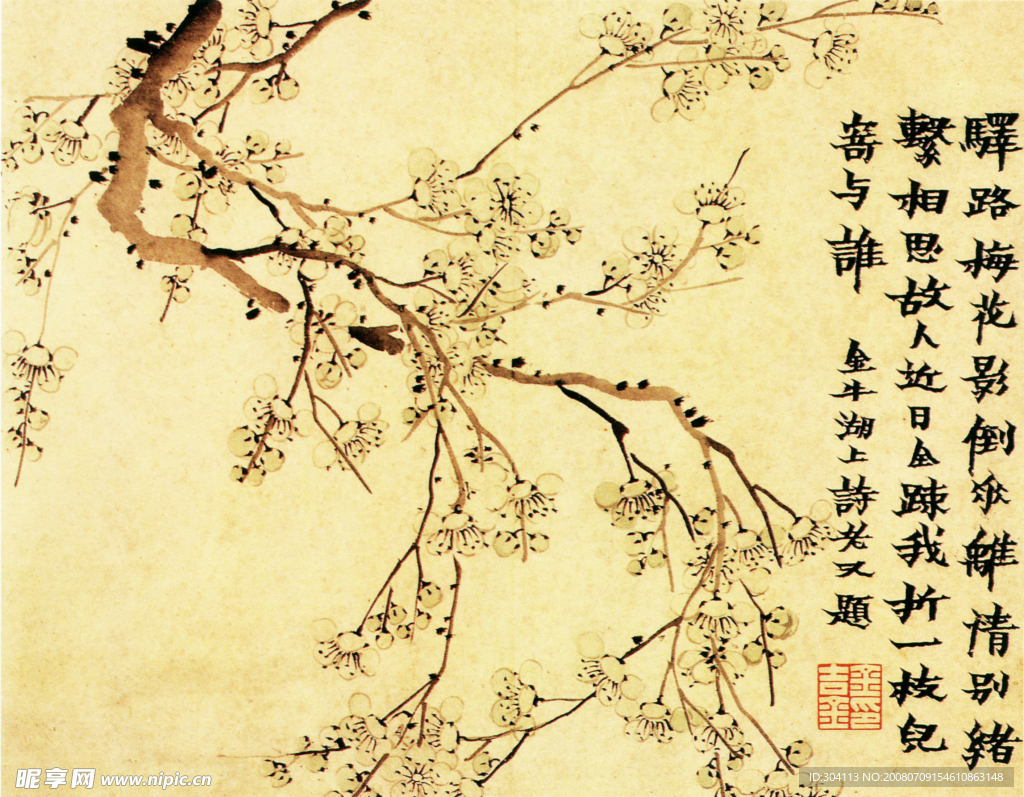 驛路梅花影倒垂離情別緒
繫相思故人近日全踈我折一枝兒
寄与誰 金牛湖上詩老又題
金吉金印
昵享网 www.nipic.cn
ID:304113 NO:20080709154610863148